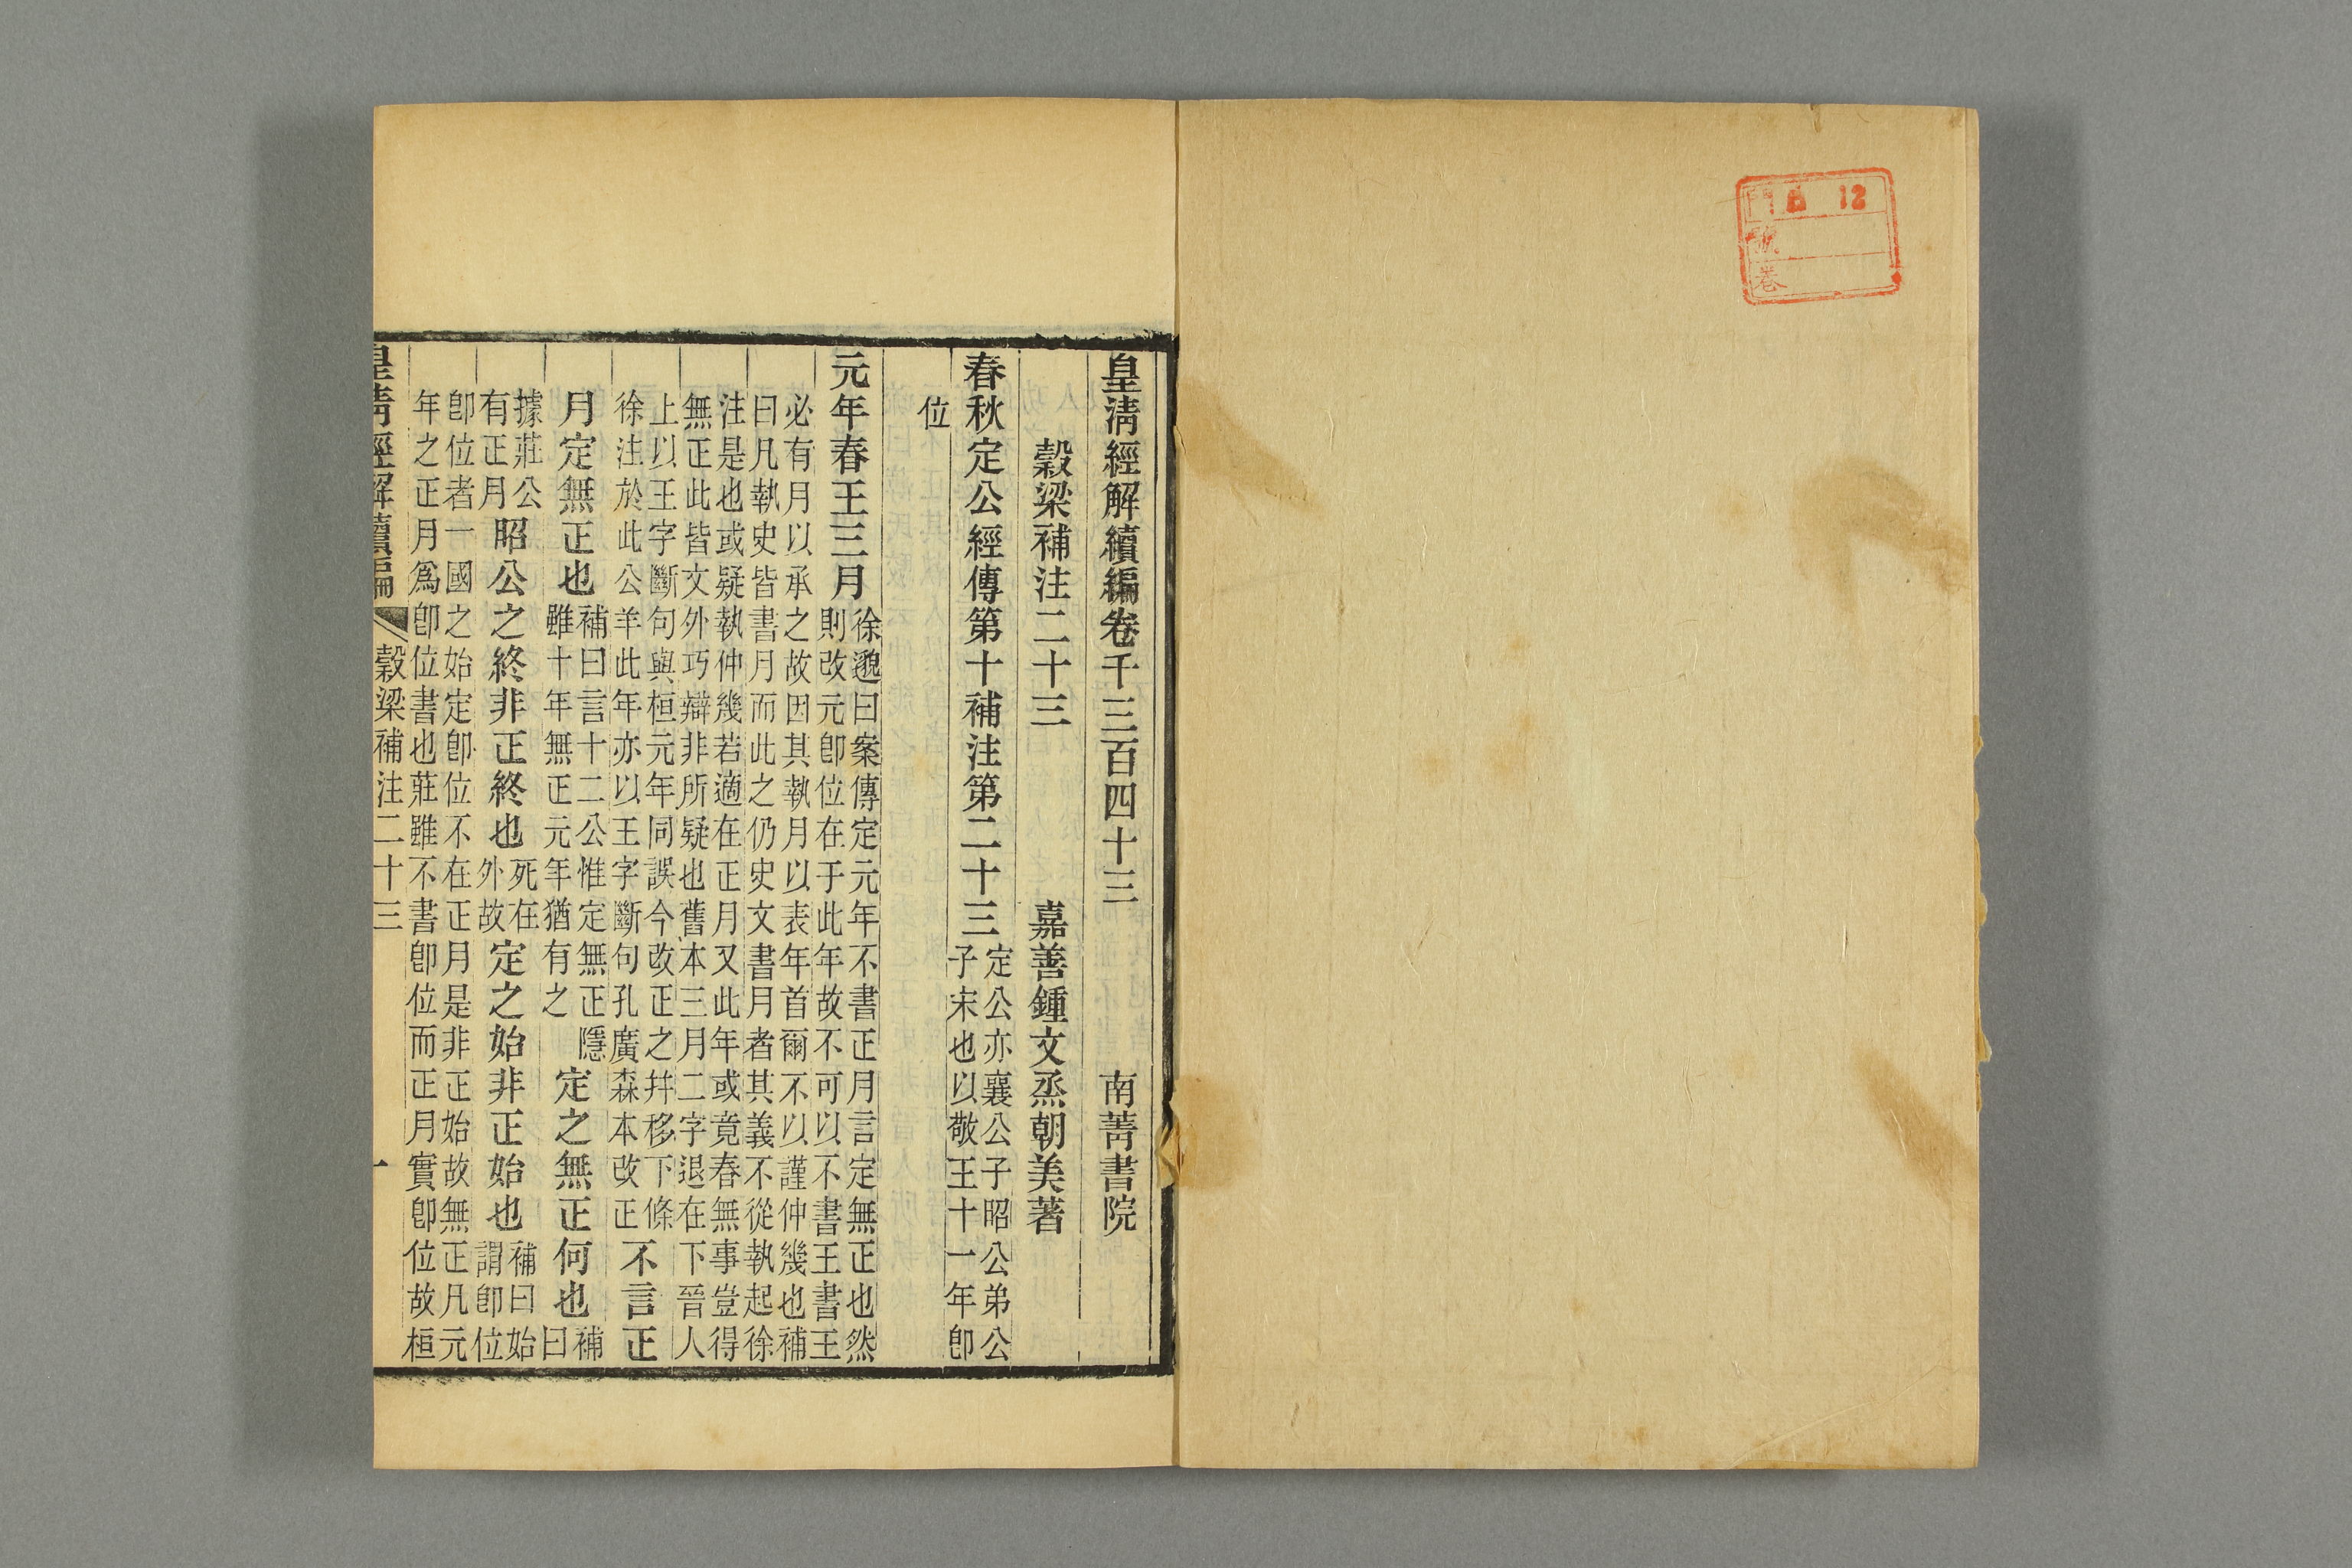 門 12
號
卷
皇清經解續編卷千三百四十三 南菁書院
穀梁補注二十三 嘉善鍾文烝朝美著
春秋定公經傳第十補注第二十三 定公亦襄公子昭公弟公
子宋也以敬王十一年卽
位
元年春王三月 徐邈曰案傳定元年不書正月言定無正也然
則改元卽位在于此年故不可以不書王書王
必有月以承之故因其執月以表年首爾不以謹仲幾也補
曰凡執史皆書月而此之仍史文書月者其義不從執起徐
注是也或疑執仲幾若適在正月又此年或竟春無事豈得
無正此皆文外巧辯非所疑也舊本三月二字退在下晉人
上以王字斷句與桓元年同誤今改正之幷移下條
徐注於此公羊此年亦以王字斷句孔廣森本改正
不言正
月定無正也 補曰言十二公惟定無正隱
雖十年無正元年猶有之
定之無正何也 補
曰
據莊公
有正月
昭公之終非正終也 死在
外故
定之始非正始也 補曰始
謂卽位
卽位者一國之始定卽位不在正月是非正始故無正凡元
年之正月爲卽位書也莊雖不書卽位而正月實卽位故桓
皇清經解續編 穀梁補注二十三 一